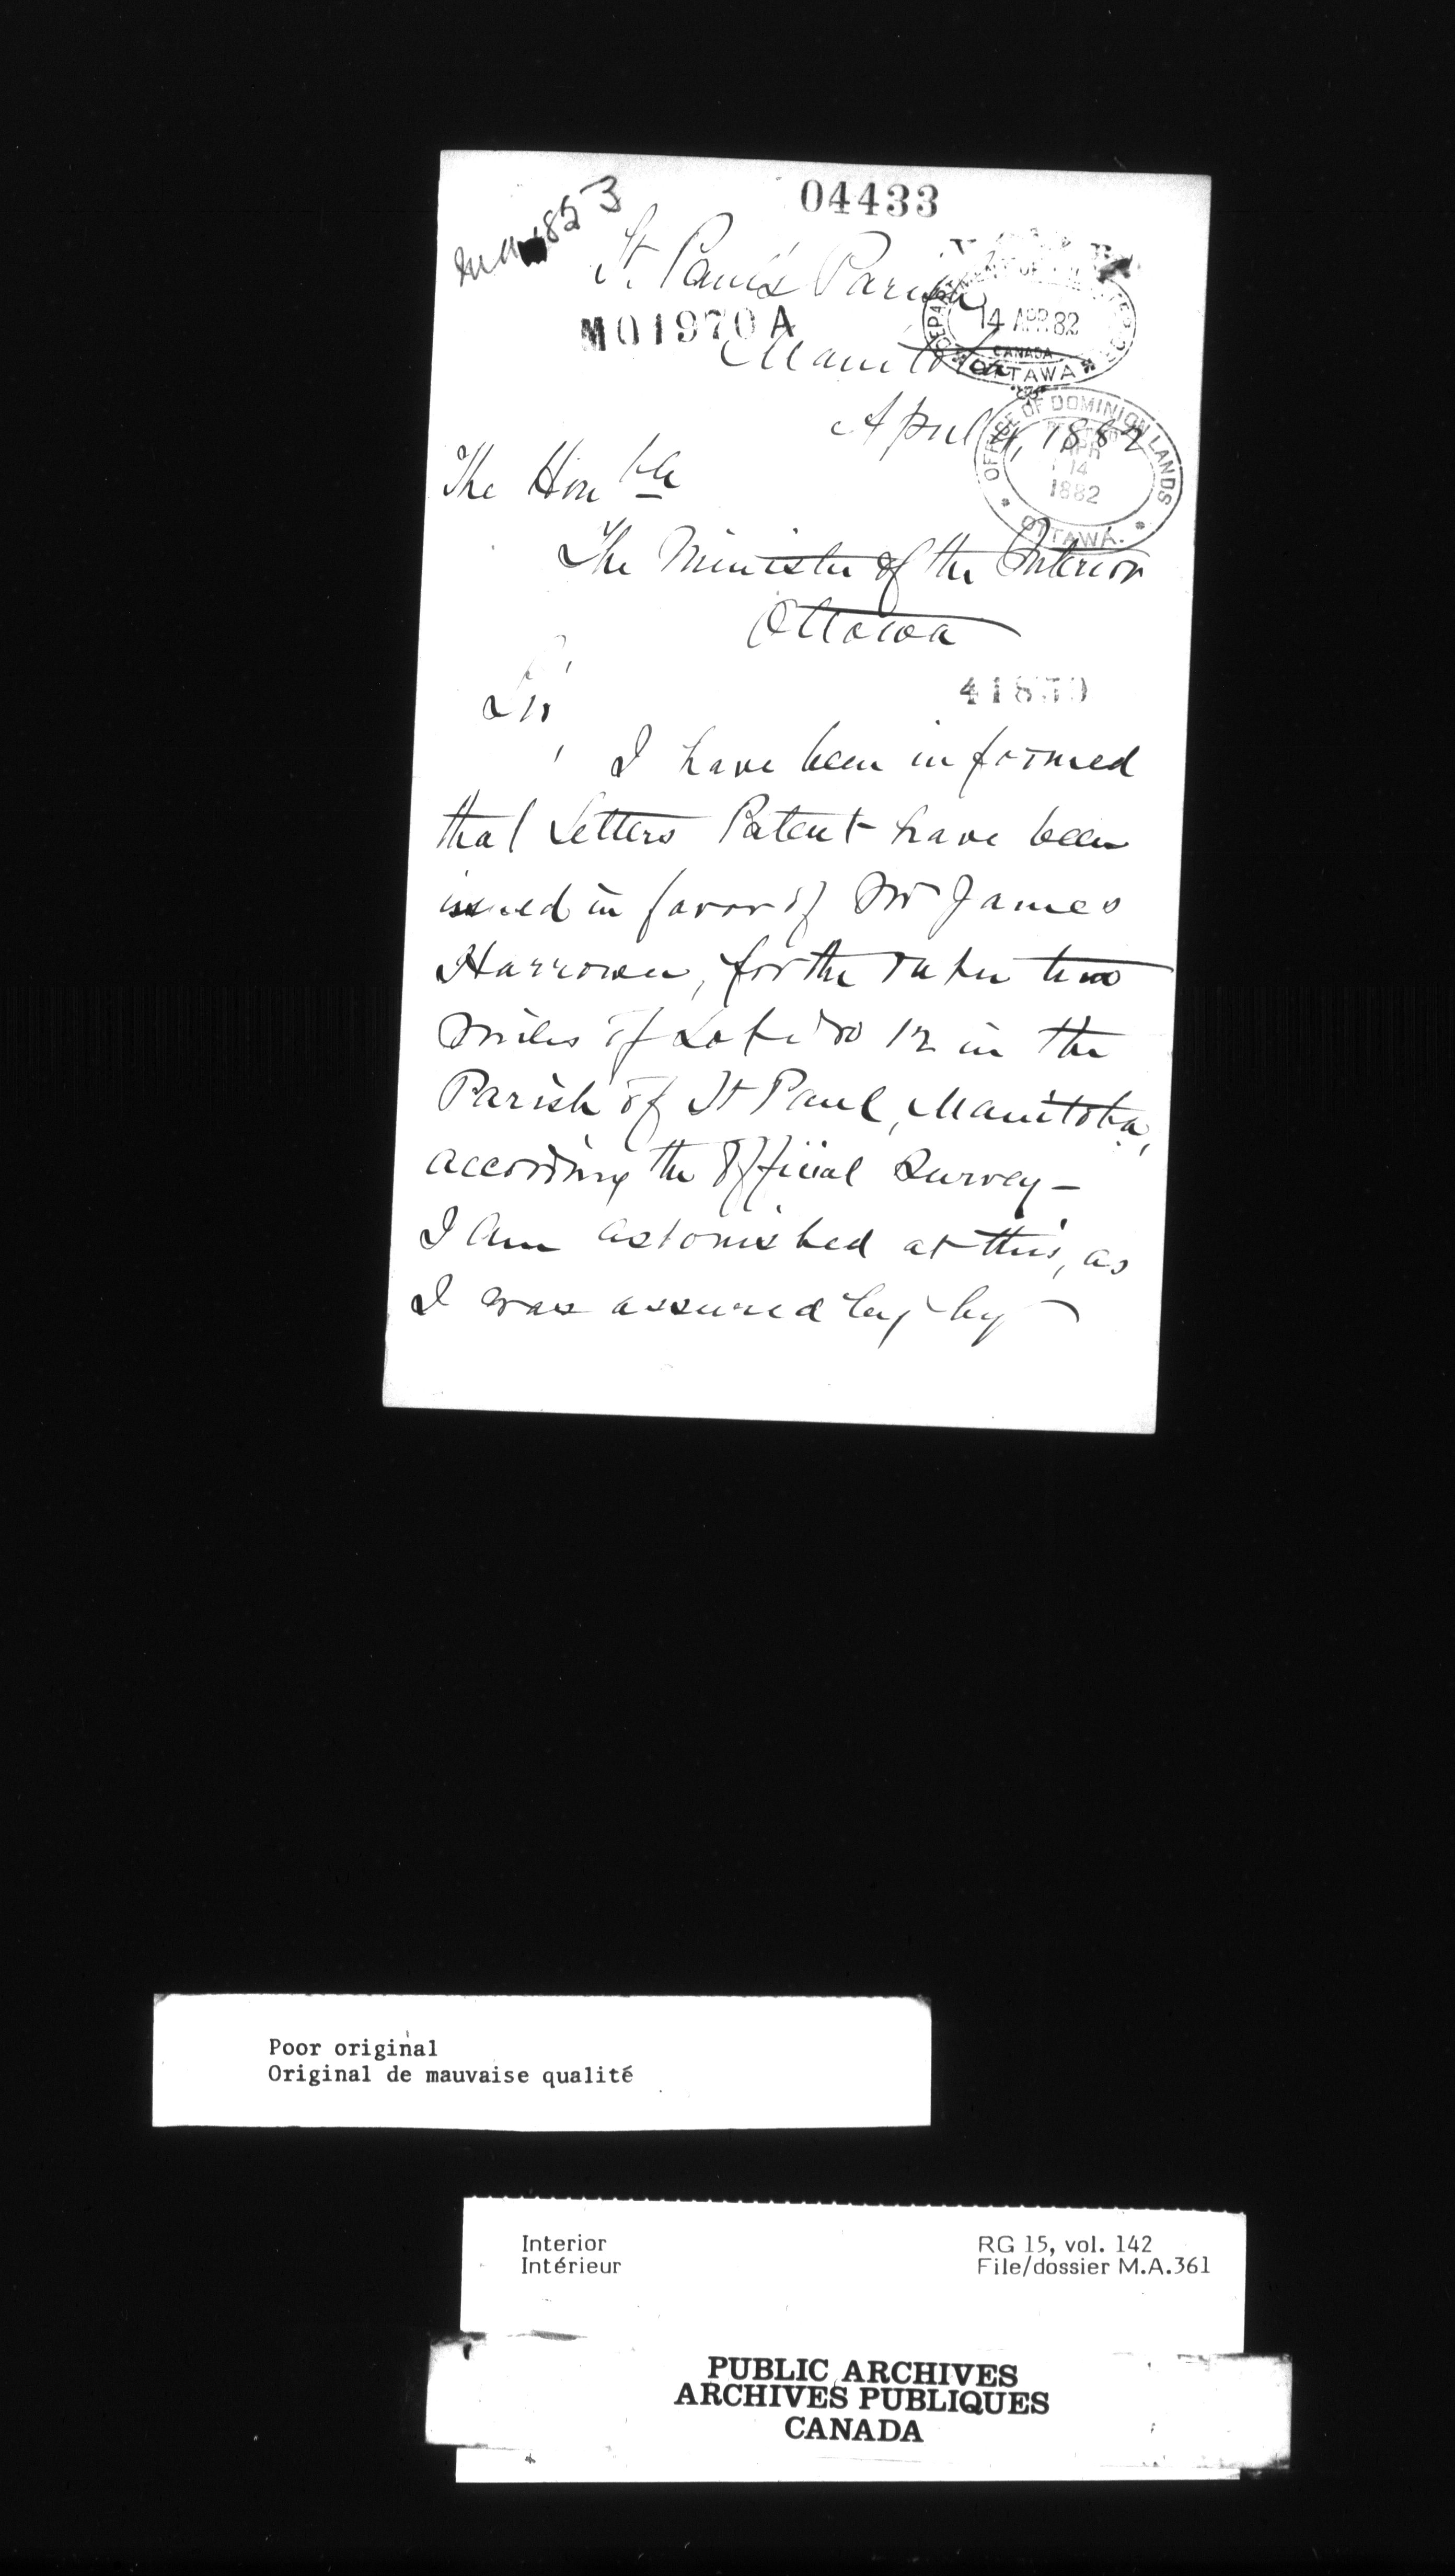 04433
St. Paul's Parish
M01970A
Manitoba
DEPARTMENT OF THE INTERIOR
14 APR 82
CANADA
OTTAWA
April 4, 1882
OFFICE OF DOMINION LANDS
APR
14
1882
OTTAWA.
The Honble
The Minister of the Interior
Ottawa
Sir,
I have been informed
that Letters Patent have been
issued in favor of Mr James
Harrower, for the outer two
miles of Lot No 12 in the
Parish of St Paul, Manitoba,
according the Official Survey –
I am astonished at this, as
I was assured by by
Poor original
Original de mauvaise qualité
Interior
Intérieur
RG 15, vol. 142
File/dossier M.A.361
PUBLIC ARCHIVES
ARCHIVES PUBLIQUES
CANADA